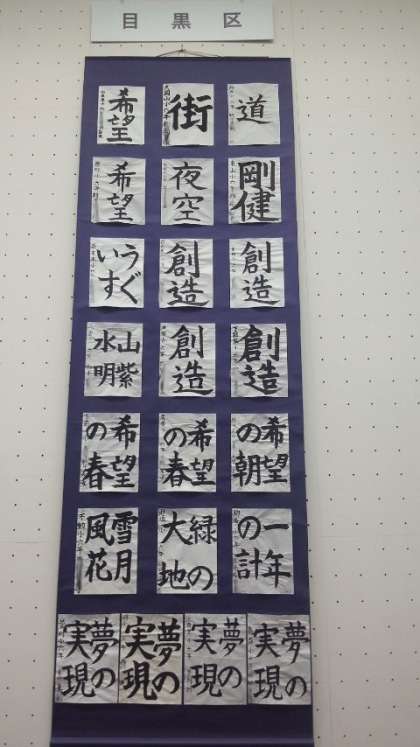 目黒区
道
街
希望
剛健
夜空
希望
創造
創造
うぐ
いす
創造
創造
山紫
水明
希望
の朝
希望
の春
希望
の春
一年
の計
緑の
大地
雪月
風花
夢の
実現
夢の
実現
夢の
実現
夢の
実現